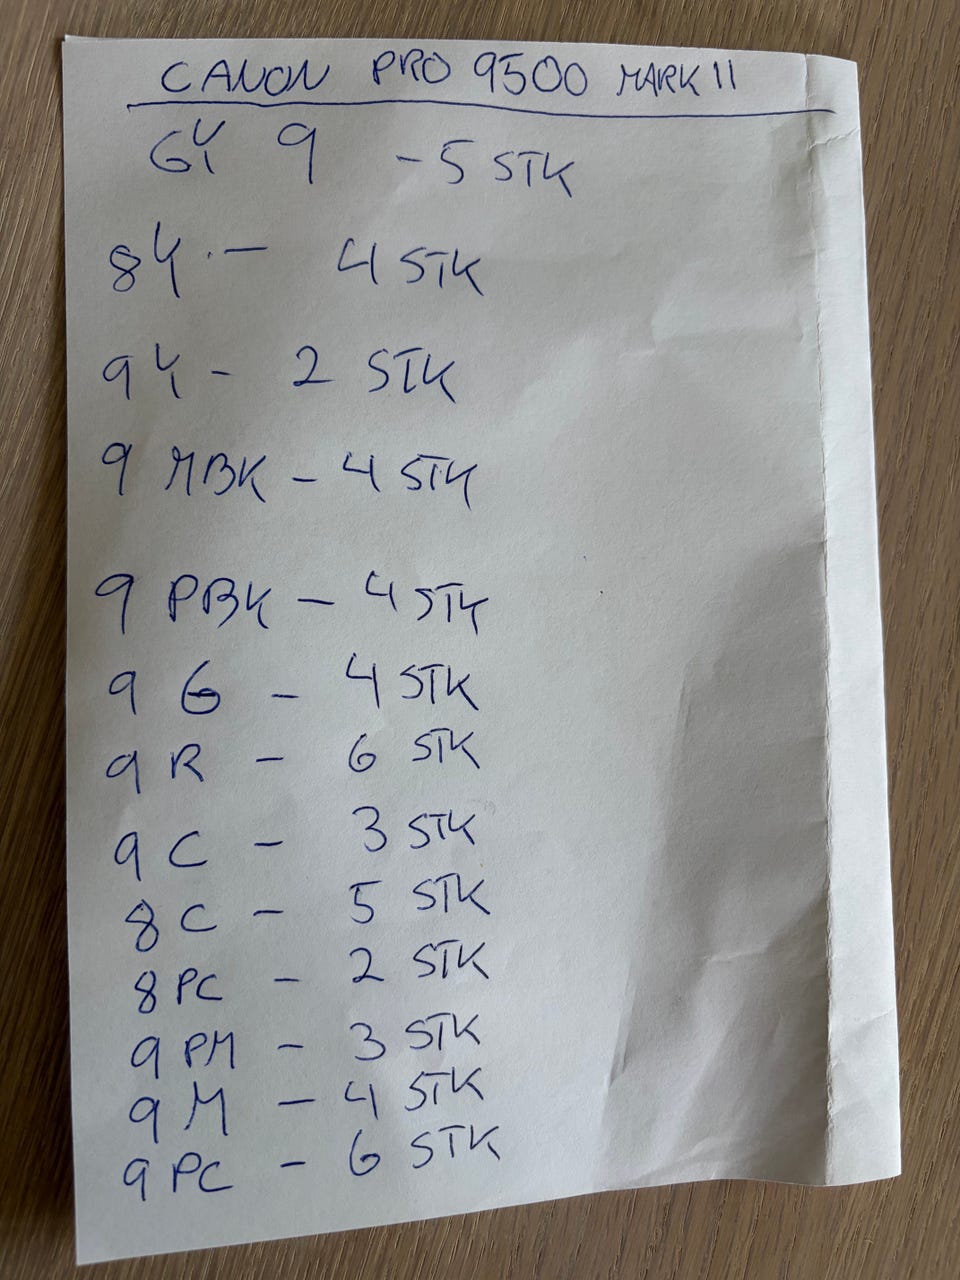 CANON PRO 9500 MARK II
GY 9 - 5 STK
8Y - 4 STK
9Y - 2 STK
9 MBK - 4 STK
9 PBK - 4 STK
9 G - 4 STK
9 R - 6 STK
9 C - 3 STK
8 C - 5 STK
8 PC - 2 STK
9 PM - 3 STK
9 M - 4 STK
9 PC - 6 STK